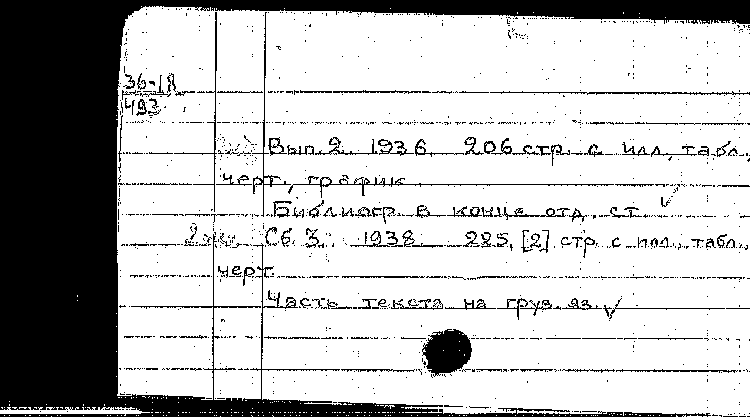 36-18
493
Вып. 2. 1936. 206 стр. с илл., табл.,
черт., график.
Библиогр. в конце отд. ст.
Сб. 3. 1938. 225, [2] стр. с илл., табл.,
черт.
Часть текста на груз. яз.